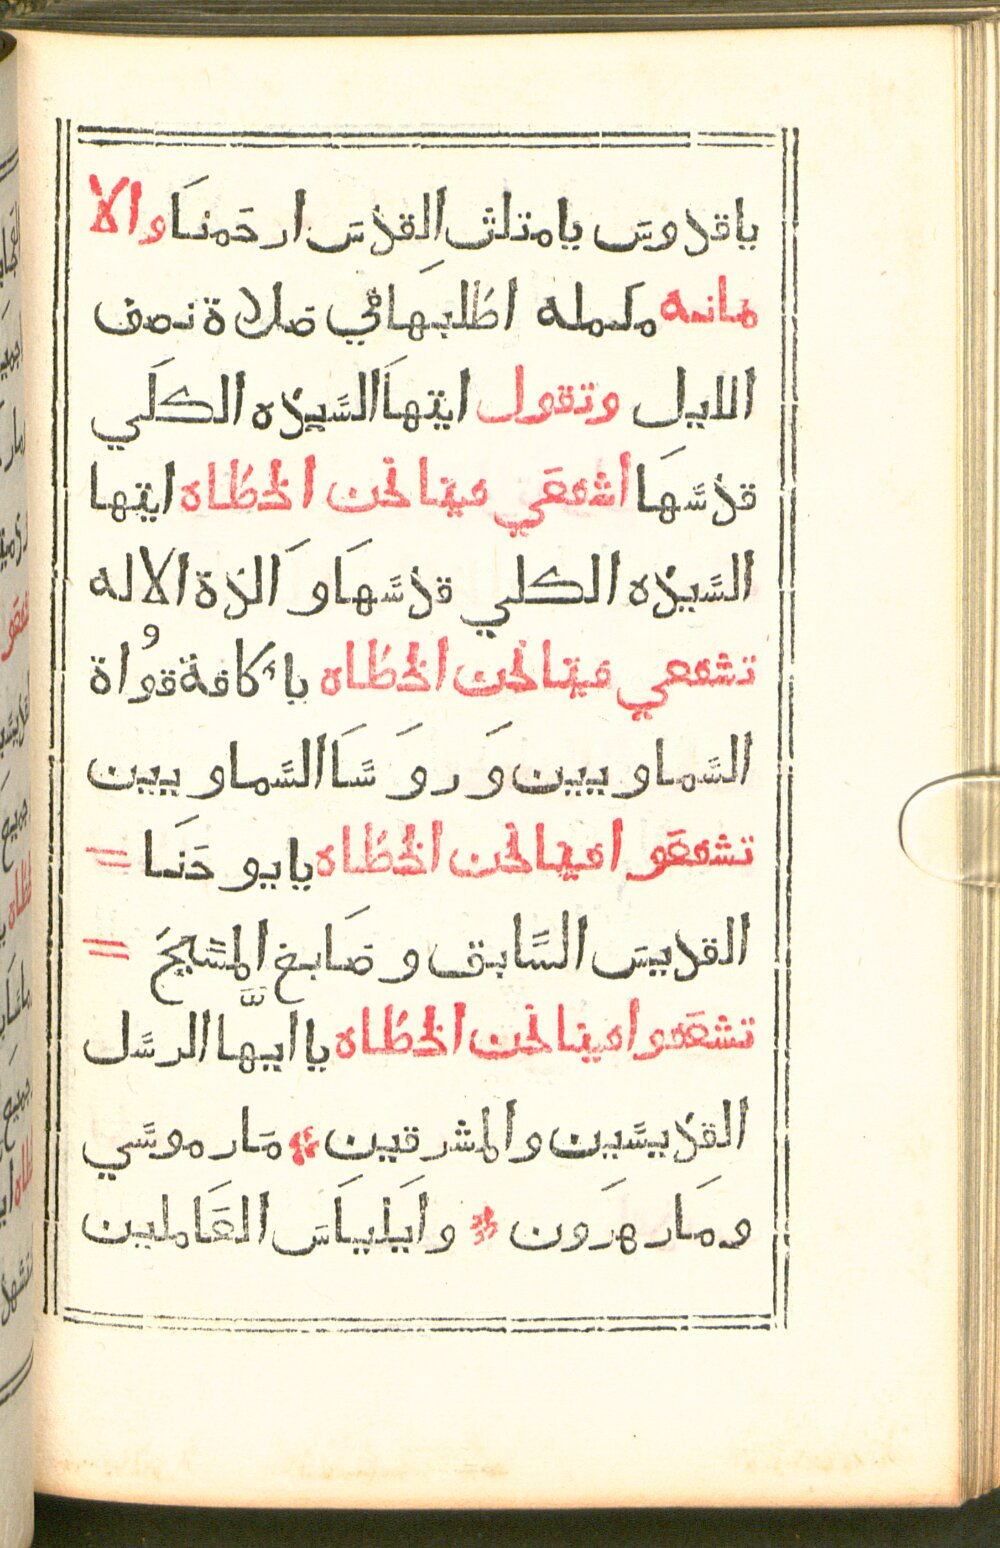 ياقدوس يامتلت القدس ارحمنا والا
مانه مكمله اطلبها في صلاة نصف
الليل وتقول ايتها السيده الكلي
قدسها اشفعي فينا نحن الخطاه ايتها
السيده الكلي قدسها والدة الاله
تشفعي فينا نحن الخطاه يا كافة قواة
السماويين وروسا السماويين
تشفعو ا فينا نحن الخطاه يايوحنا =
القديس السابق وصابغ المسيح =
تشفعوا فينا نحن الخطاه يا ايها الرسل
القديسين والمشرقين مار موسي
ومار هرون وايلياس العاملين